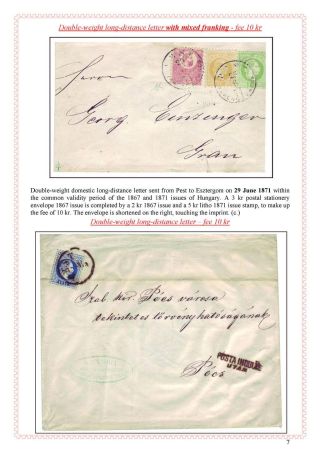 Double-weight long-distance letter with mixed franking - fee 10 kr
Herrn
Georg
Gran
Double-weight domestic long-distance letter sent from Pest to Esztergom on 29 June 1871 within
the common validity period of the 1867 and 1871 issues of Hungary. A 3 kr postal stationery
envelope 1867 issue is completed by a 2 kr 1867 issue and a 5 kr litho 1871 issue stamp, to make up
the fee of 10 kr. The envelope is shortened on the right, touching the imprint. (c.)
Double-weight long-distance letter – fee 10 kr
Szab. kir. Pécs városa
tekintetes törvényhatóságának
Pécs
UTÁN
7